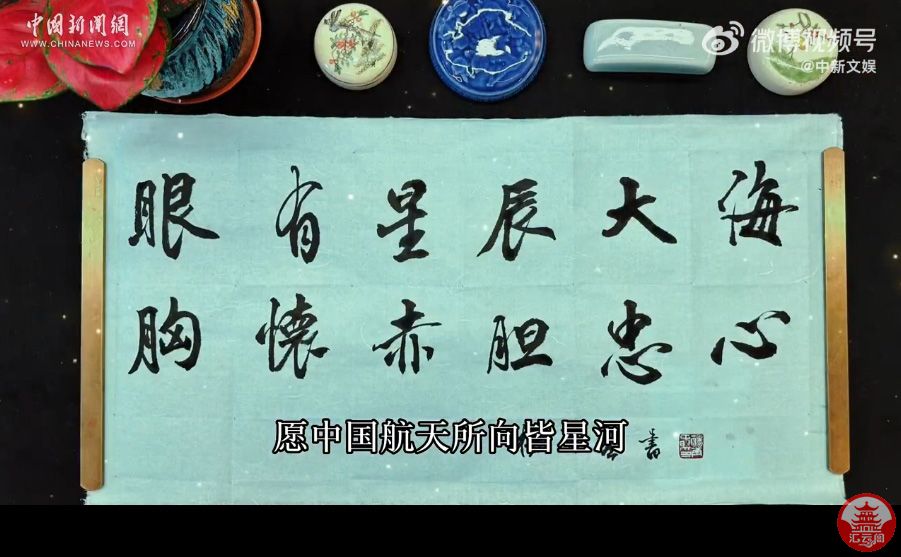 中國新聞網
WWW.CHINANEWS.COM
微博视频号
@中新文娱
眼有星辰大海
胸懷赤胆忠心
愿中国航天所向皆星河
書
汇云阁